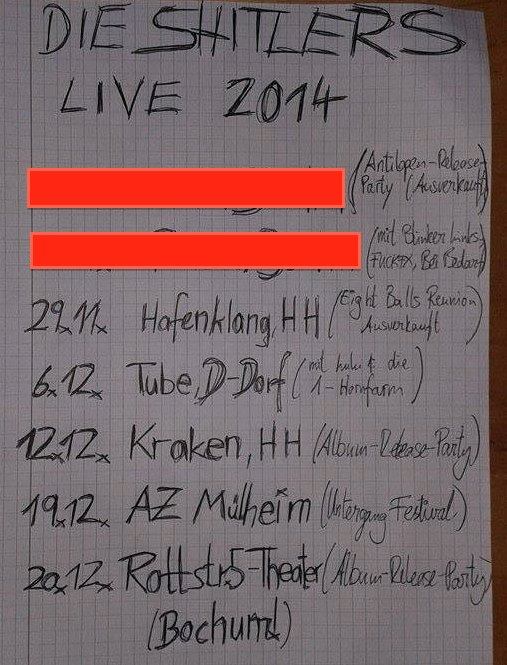 DIE SHITLERS
LIVE 2014
(Antilopen-Release-
Party (Ausverkauft)
(mit Blinker Links,
Bei Bedarf)
29.11. Hafenklang, HH (Eight Balls Reunion
Ausverkauft)
6.12. Tube, D-Dorf (mit hulu & die
1-Hornfarm)
12.12. Kraken, HH (Album-Release-Party)
19.12. AZ Mülheim (Untergang Festival)
20.12. Rottstr5-Theater (Album-Release-Party)
(Bochum)